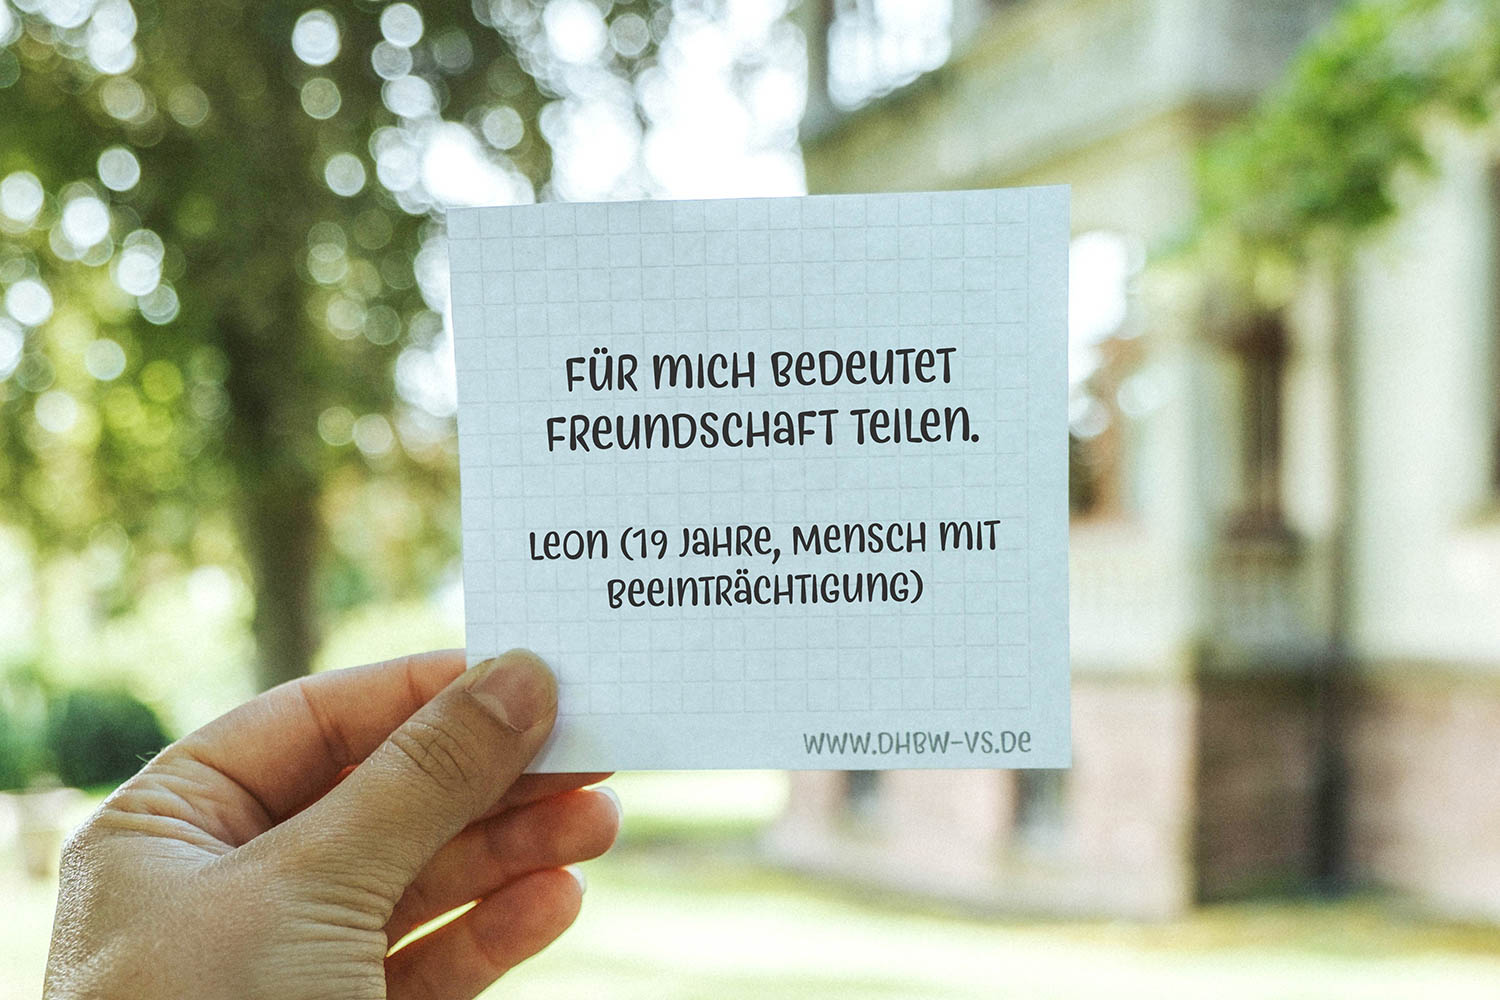 Für mich bedeutet
Freundschaft teilen.
Leon (19 Jahre, Mensch mit
Beeinträchtigung)
www.dhbw-vs.de